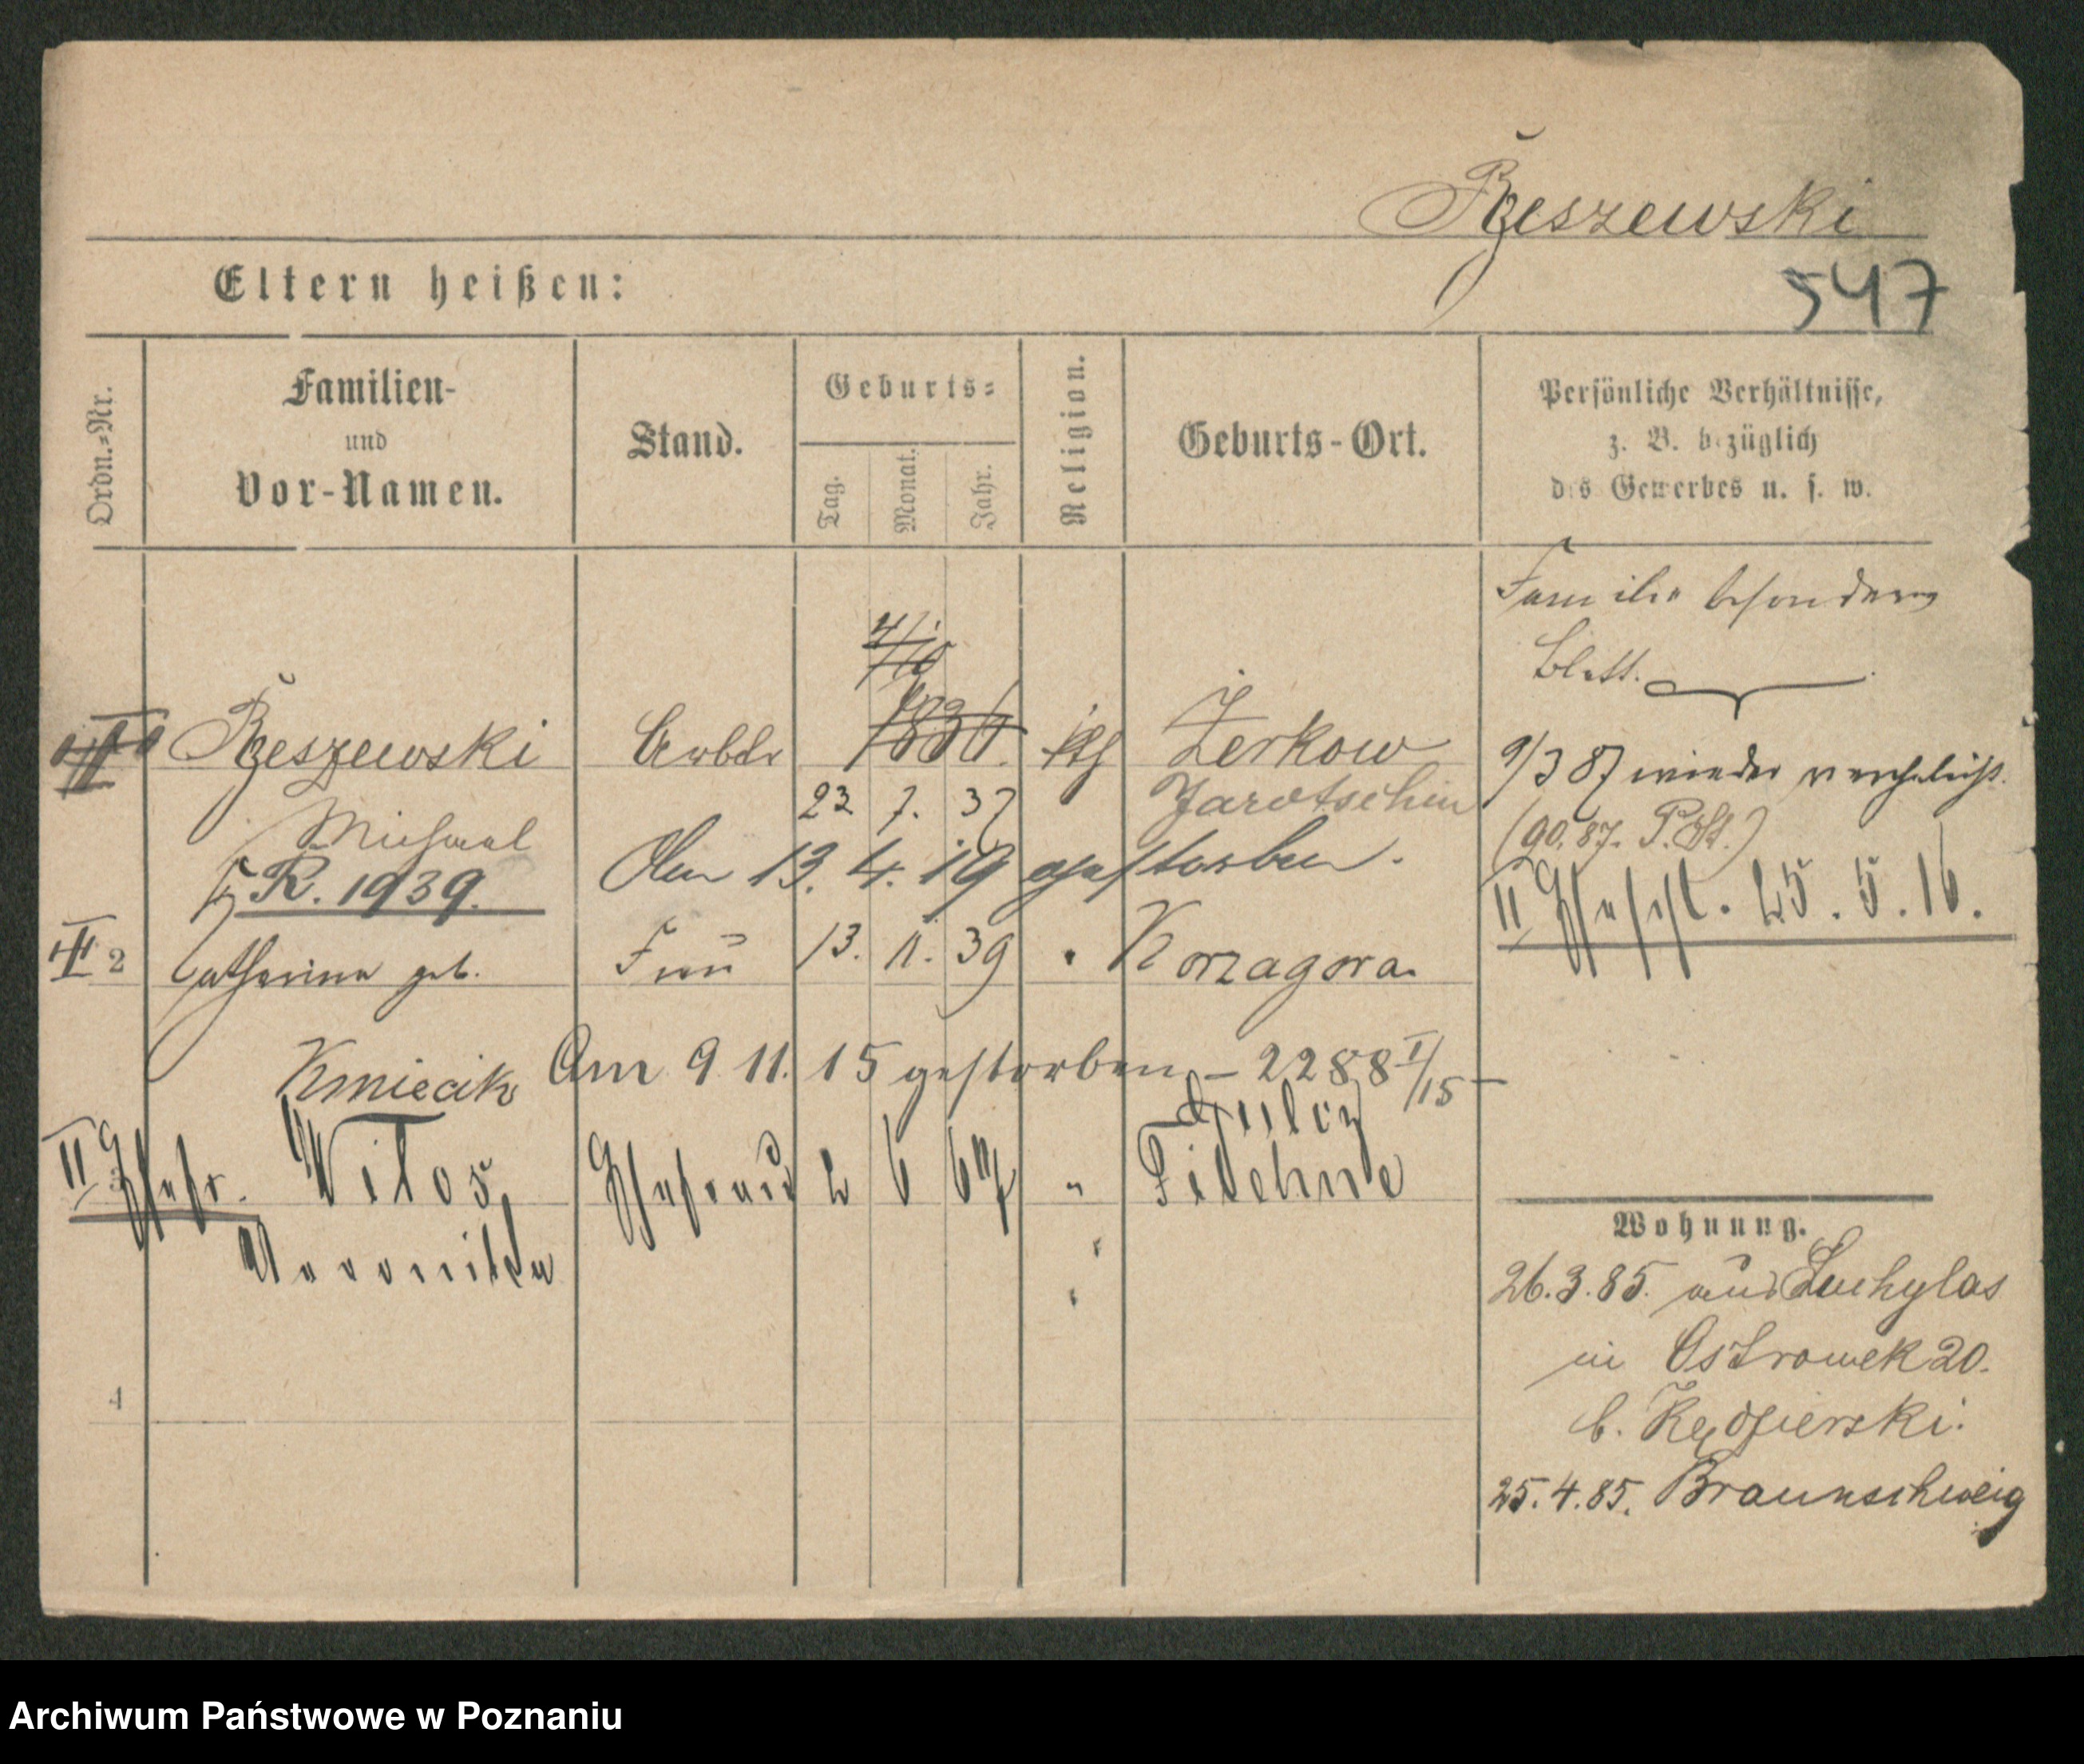 Rzeszewski
547
Eltern heißen:
Ordn.=Nr.
Familien-
und
Vor-Namen.
Stand.
Geburts=
Tag.
Monat.
Jahr.
Religion.
Geburts-Ort.
Persönliche Verhältnisse,
z. B. bezüglich
des Gewerbes u. s. w.
Familie besonderes
Blatt.
4/10
Rzeszewski Arbtr 1836. kth Zerkow
Michael 23 7. 37 Jarotschin
9/3 87 wieder verehelicht.
(90.87. P. St.)
R. 1939. Am 13. 4. 19 gestorben.
II Ehesch. 25. 5. 16.
III 2 Catharina geb. Frau 13. 11. 39 " Korzagora.
Kmiecik Am 9 11. 15 gestorben – 2288 I/15 –
II Ehefr. Witos, Ehefrau 2 6 67 " Filehne
Veronika
4
Wohnung.
26.3.85. aus Luchylas
in Ostrowek 20.
b. Kędzierski.
25.4.85. Braunschweig
Archiwum Państwowe w Poznaniu